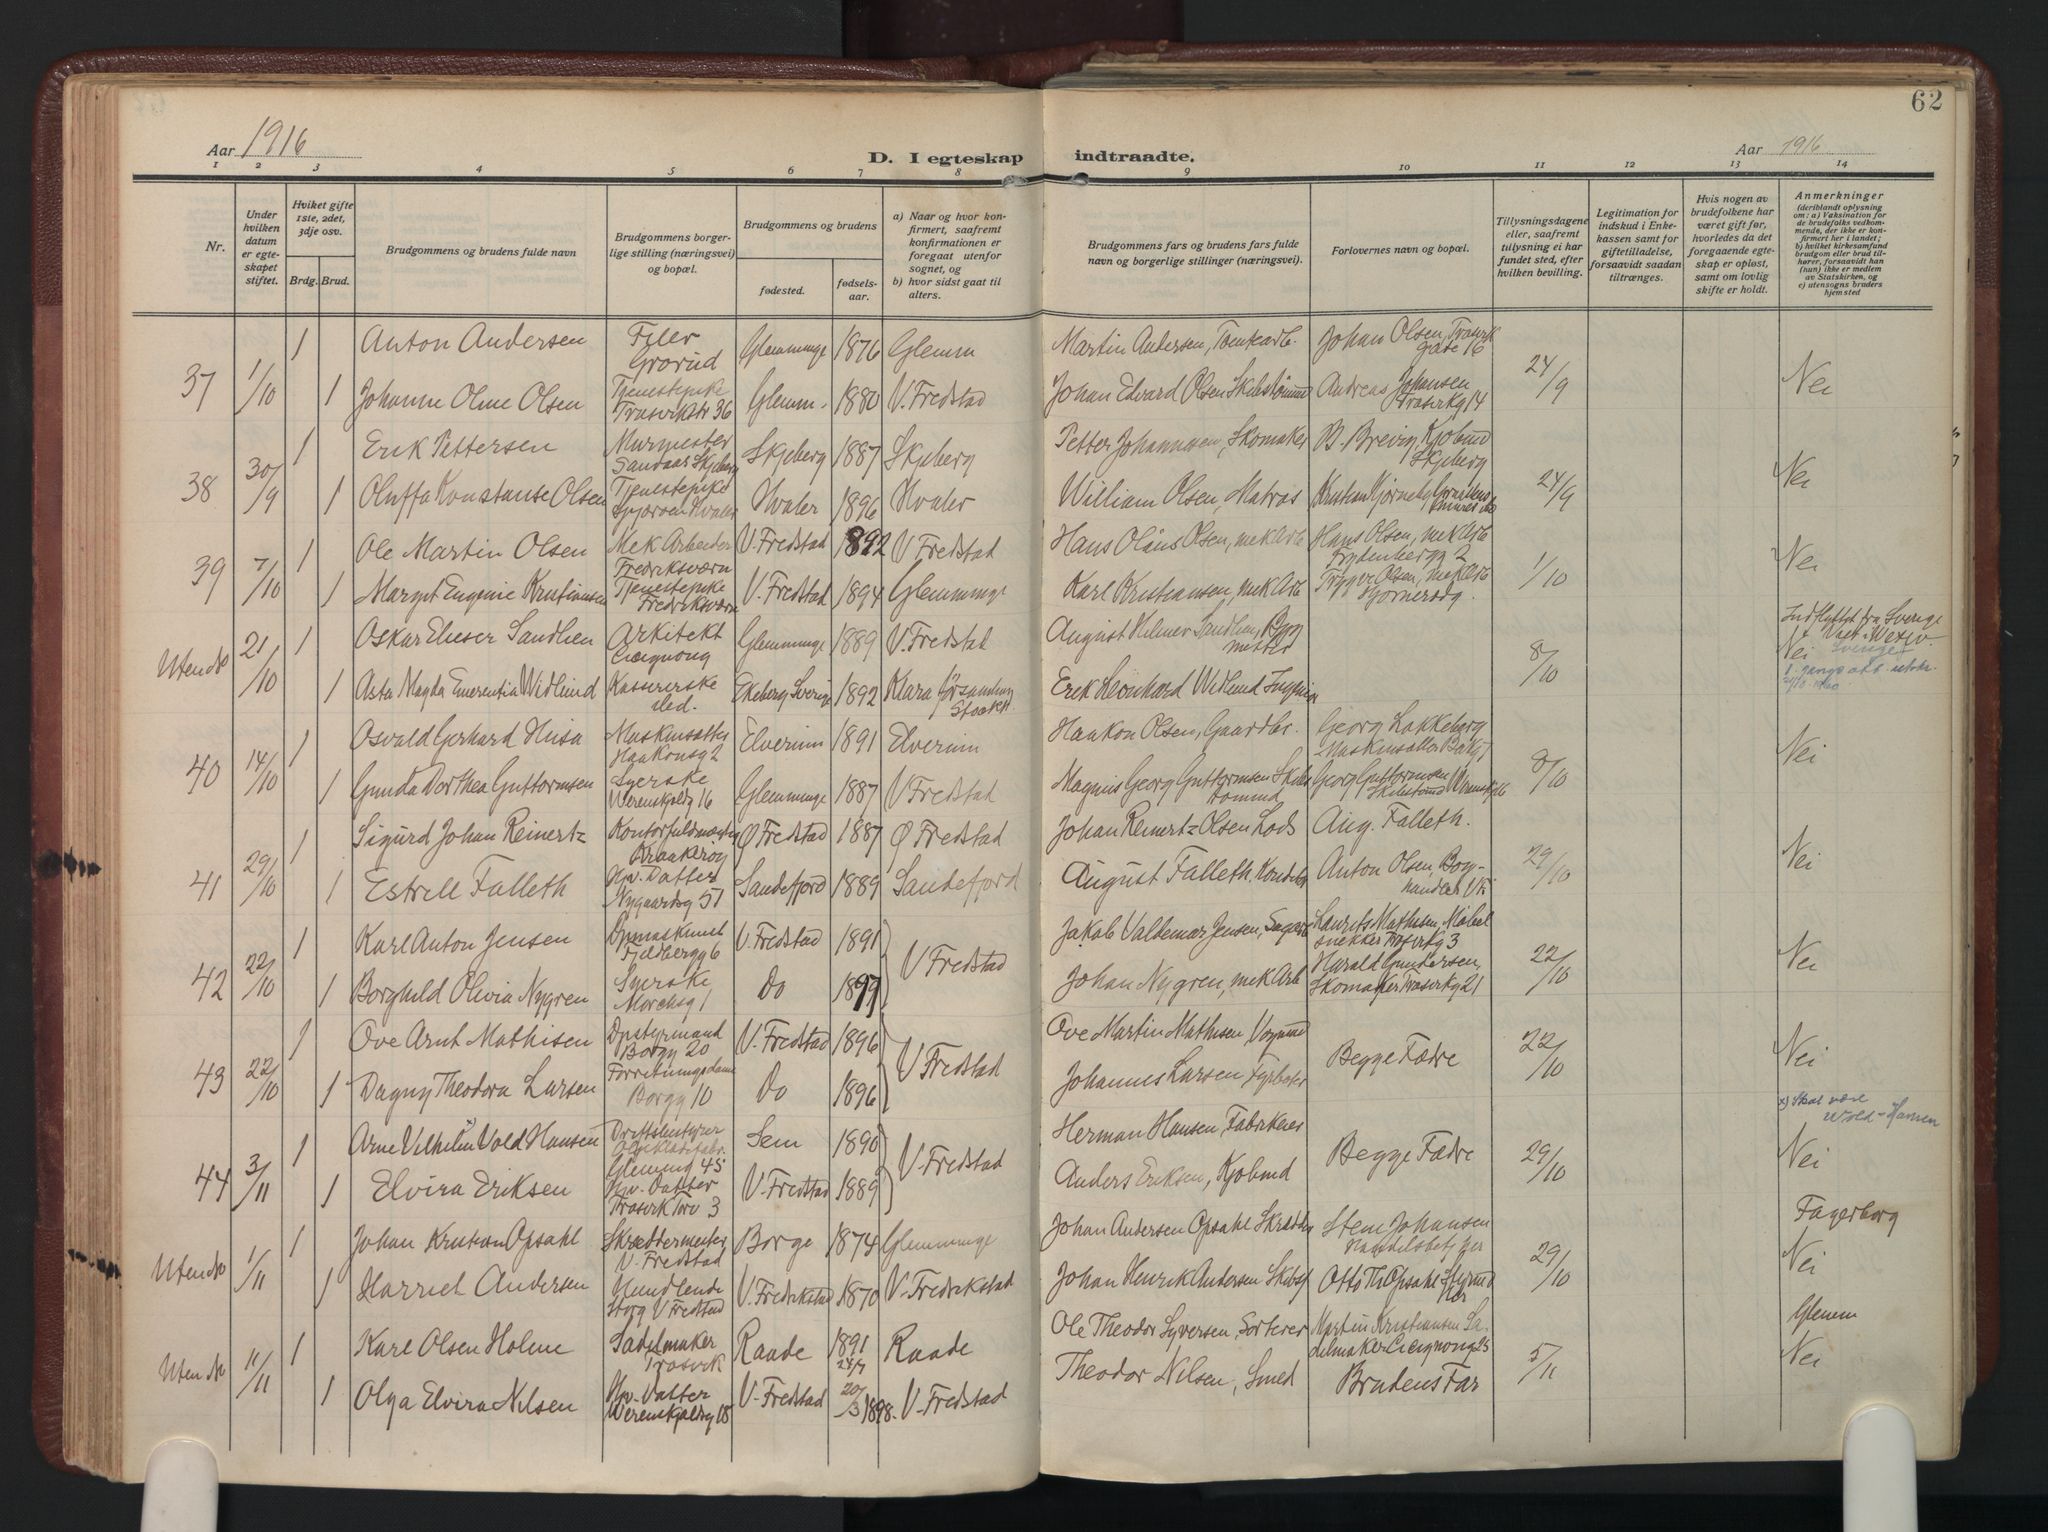 62
Aar 1916
D. I egteskap indtraadte.
Aar 1916
1 2 3 4 5 6 7 8 9 10 11 12 13 14
Nr.
Under hvilken datum er egteskapet stiftet.
Hviket gifte 1ste, 2det, 3dje osv.
Brdg. Brud.
Brudgommens og brudens fulde navn
Brudgommens borgerlige stilling (næringsvei) og bopæl.
Brudgommens og brudens
fødested.
fødselsaar.
a) Naar og hvor konfirmert, saafremt konfirmationen er foregaat utenfor sognet, og
b) hvor sidst gaat til alters.
Brudgommens fars og brudens fars fulde navn og borgerlige stillinger (næringsvei).
Forlovernes navn og bopæl.
Tillysningsdagene eller, saafremt tillysning ei har fundet sted, efter hvilken bevilling.
Legitimation for indskud i Enkekassen samt for giftetilladelse, forsaavidt saadan tiltrænges.
Hvis nogen av brudefolkene har været gift før, hvorledes da det foregaaende egteskap er opløst, samt om lovlig skifte er holdt.
Anmerkninger
(deriblandt oplysning om: a) Vaksination for de brudefolks vedkommende, der ikke er konfirmert her i landet; b) hvilket kirkesamfund brudgom eller brud tilhører, forsaavidt han (hun) ikke er medlem av Statskirken, og c) utensogns bruders hjemsted
37 1/10 1 Anton Andersen Filer Grorud Glemminge 1876 Glemm Martin Andersen, Johan Olsen, Trosvik gate 16 24/9 Nei
1 Johanne Oline Olsen Tjenestepike Trosvikstr 36 Glemm. 1880 V. Fredstad Johan Edvard Olsen Andreas Johansen Trosvikg 14
38 30/9 1 Erik Pettersen Murmester Skjeberg Skjeberg 1887 Skjeberg Petter Johannesen, Skomaker B. Brevig, Kjøbmd Skjeberg 24/9 Nei
1 Oluffa Konstanse Olsen Tjenestepike Hvaler Hvaler 1896 Hvaler William Olsen, Matros Kristian
39 7/10 1 Ole Martin Olsen Mek Arbeider Fredriksværn V. Fredstad 1892 V Fredstad Hans Olaus Olsen, mek Arb Hans Olsen, mek Arb Frydenbergg 2 1/10 Nei
1 Margit Eugenie Kristiansen Tjenestepike Fredriksværn V. Fredstad 1894 Glemminge Karl Kristiansen, mek Arb Trygve Olsen, mek Arb
Utensb 21/10 1 Oskar Elieser Sandlien Arkitekt Cicignong Glemminge 1889 V. Fredstad August Hilmer Sandlien, Bygmester 8/10 Indflyttet fra Sverige Nei Sverige
1 Asta Magda Emerentia Widlund Kassererske sted. Ekeberg Sverige 1892 Klara församling Stockh. Erik Leonhard Widlund
40 14/10 1 Osvald Gerhard Hiisa Maskinsætter Haakonsg 2 Elverum 1891 Elverum Haakon Olsen, Gaardbr. Georg Lakkeberg Maskinsætter 8/10 Nei
1 Gunda Dorthea Guttormsen Syerske Werenskjoldg 16 Glemminge 1887 V Fredstad Magnus Georg Guttormsen Georg Guttormsen
41 29/10 1 Sigurd Johan Reinertz Kontorfuldmægtig Kraakerøy Ø Fredstad 1887 Ø Fredstad Johan Reinertz Olsen Lods Aug. Falleth. 29/10 Nei
1 Estrell Falleth Hjv. Datter Nygaardsg 51 Sandefjord 1889 Sandefjord August Falleth, Anton Olsen, Boghandler
42 22/10 1 Karl Anton Jensen Fjeldbergg 6 V. Fredstad 1891 V Fredstad Jakob Valdemar Jensen, Laurits Mathisen, Møbelsnekker Trosvikg 3 22/10 Nei
1 Borghild Olivia Nygren Syerske Morchsg 1 Do 1897 Johan Nygren, mek Arb Harald Gundersen, Skomaker Trosvikg 21
43 22/10 1 Ove Arnt Mathisen Dpstyrmand Borgg 20 V. Fredstad 1896 V Fredstad Ove Martin Mathisen Begge Fædre 22/10 Nei
1 Dagny Theodora Larsen Forretningsdame Borgg 10 Do 1896 Johannes Larsen Fyrbøter
x) Skal være Wold-Hansen
44 3/11 1 Arne Vilhelm Vold Hansen Driftsbestyrer Glemmg 45 Sem 1890 V. Fredstad Herman Hansen, Fabrikeier Begge Fædre 29/10 Nei
1 Elvira Eriksen Hjv. Datter Trosvik Torv 3 V. Fredstad 1889 Anders Eriksen, Kjøbmd
Utensb 1/11 1 Johan Kristian Opsahl Skræddermester V. Fredstad Borge 1874 Glemminge Johan Andersen Opsahl Skrædder Sten Johansen 29/10 Fagerborg Nei
1 Harriet Andersen V Fredstad V. Fredrikstad 1870 V. Fredrikstad Johan Henrik Andersen Otto Th Opsahl Styrmd
Utensb 11/11 1 Karl Olsen Holme Sadelmaker Trosvik Raade 1891 24/7 Raade Ole Theodor Syversen, Sorterer Martin Kristiansen Sadelmaker Cicignong 25 5/11 Glemm Nei
1 Olga Elvira Nilsen Hjv. Datter Werenskjoldsg 18 V. Fredstad 20/3 1898. V. Fredstad Theodor Nilsen, Smed Brudens Far